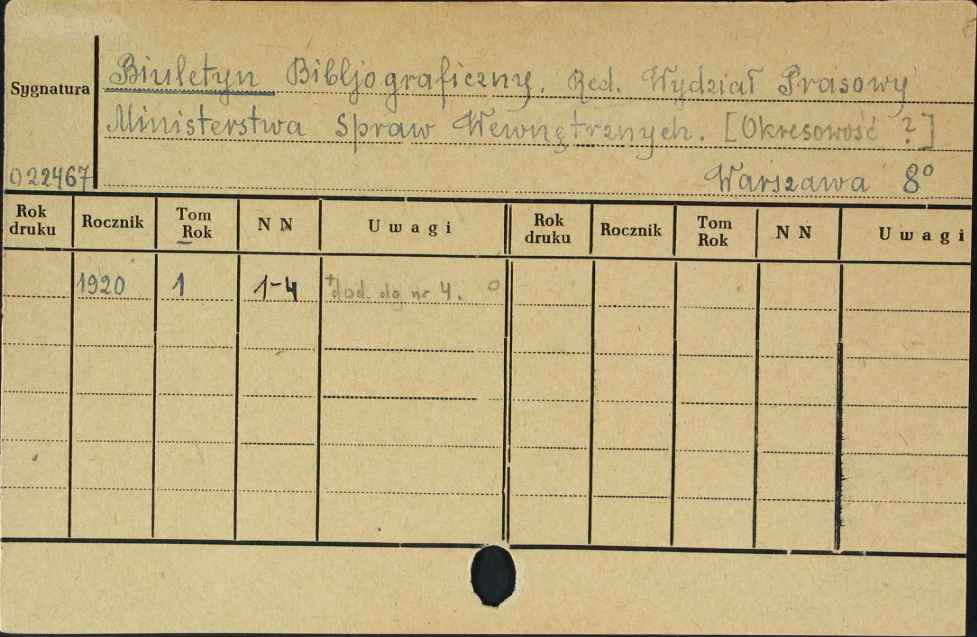 Biuletyn Bibljograficzny. Red. Wydział Prasowy
Sygnatura
Ministerstwa Spraw Wewnętrznych. [Okresowość ?]
022467
Warszawa 8°
Rok druku Rocznik Tom Rok N N Uwagi Rok druku Rocznik Tom Rok N N Uwagi
1920 1 1-4 +dod. do nr 4. o